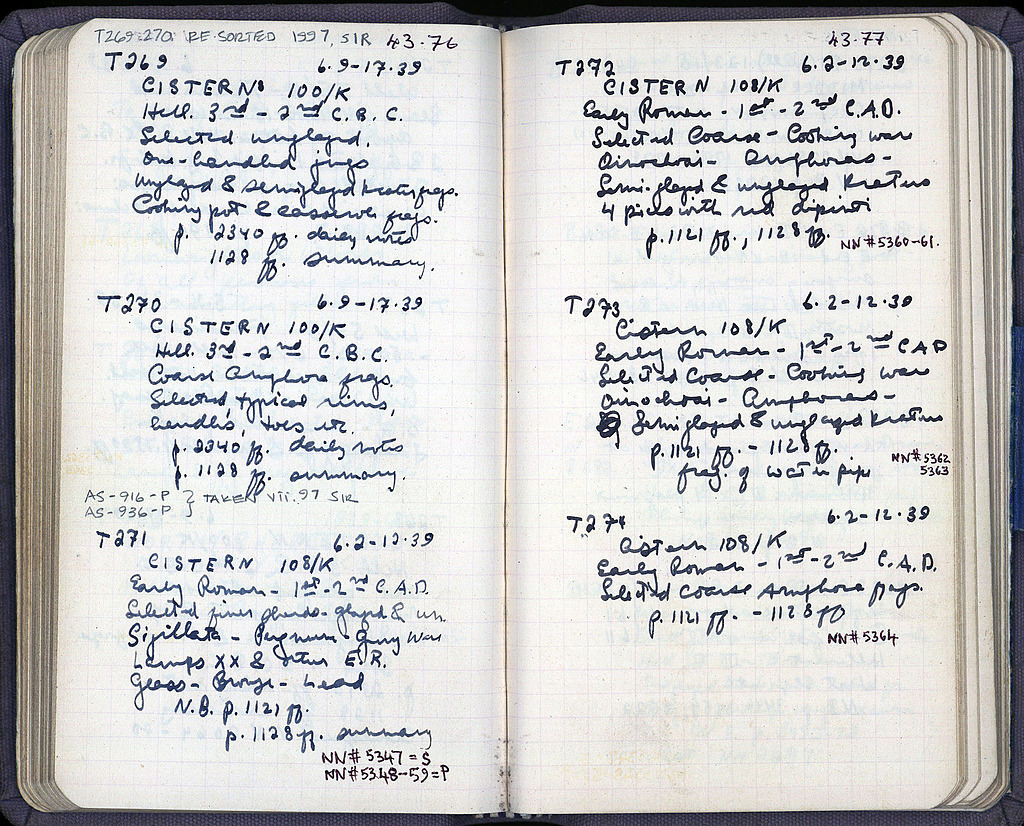 T269-270 RE-SORTED 1997, SIR 43.76
T269 6.9-17.39
CISTERN 100/K
Hell. 3rd - 2nd C. B. C.
Selected unglazed.
One-handled jugs
Unglazed & semiglazed krater frags.
Cooking pot & casserole frags.
p. 2340 ff. daily notes
1128 ff. summary.
T270 6.9-17.39
CISTERN 100/K
Hell. 3rd - 2nd C. B.C.
Coarse Amphora frags.
Selected, typical rims,
handles, toes etc.
p. 2340 ff. daily notes
p. 1128 ff. summary.
AS-916-P } TAKEN Vii.97 SIR
AS-936-P
T271 6.2-12.39
CISTERN 108/K
Early Roman - 1st - 2nd C. A.D.
Selected fine glazed & un.
Sigillata - Pergamon - Gray Ware
Lamps XX & other E.R.
Glass - Bronze - Lead
N.B. p. 1121 ff.
p. 1128 ff. summary
NN# 5347 = S
NN# 5348-59 = P
43.77
T272 6.2-12.39
CISTERN 108/K
Early Roman - 1st - 2nd C. A.D.
Selected Coarse - Cooking ware
Oinochoai - Amphoras -
Semi-glazed & unglazed Kraters
4 pieces with red dipinti
p. 1121 ff., 1128 ff.
NN# 5360-61.
T273 6.2-12.39
Cistern 108/K
Early Roman - 1st - 2nd C AD
Selected Coarse - Cooking ware
Oinochoai - Amphoras -
Semiglazed & unglazed Kraters
p. 1121 ff. - 1128 ff.
frag. of water pipe
NN# 5362
5363
T274 6.2-12.39
Cistern 108/K
Early Roman - 1st - 2nd C. A.D.
Selected Coarse Amphora frags.
p. 1121 ff. - 1128 ff
NN# 5364